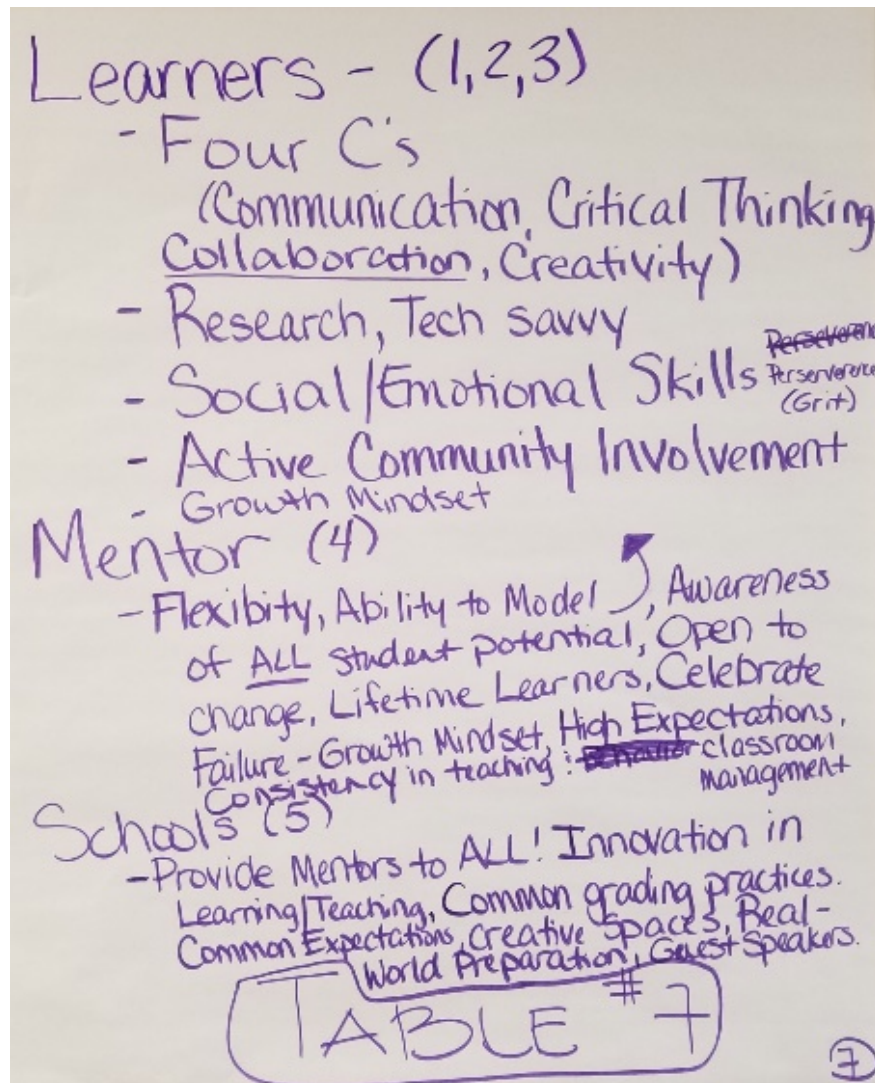 Learners - (1,2,3)
- Four C's
(Communication, Critical Thinking
Collaboration, Creativity)
- Research, Tech savvy
- Social/Emotional Skills Perserverence
(Grit)
- Active Community Involvement
- Growth Mindset
Mentor (4)
- Flexibity, Ability to Model , Awareness
of ALL student potential, Open to
change, Lifetime Learners, Celebrate
Failure - Growth Mindset, High Expectations,
Consistency in teaching : behavior classroom
management
Schools (5)
- Provide Mentors to ALL! Innovation in
Learning/Teaching, Common grading practices.
Common Expectations, Creative Spaces, Real-
World Preparation, Guest Speakers.
TABLE #7
7